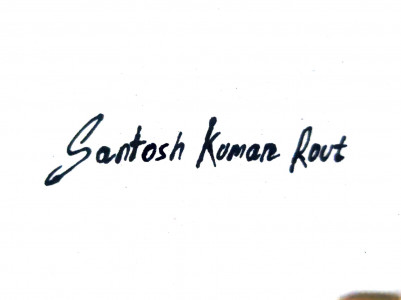 Santosh Kumar Rout